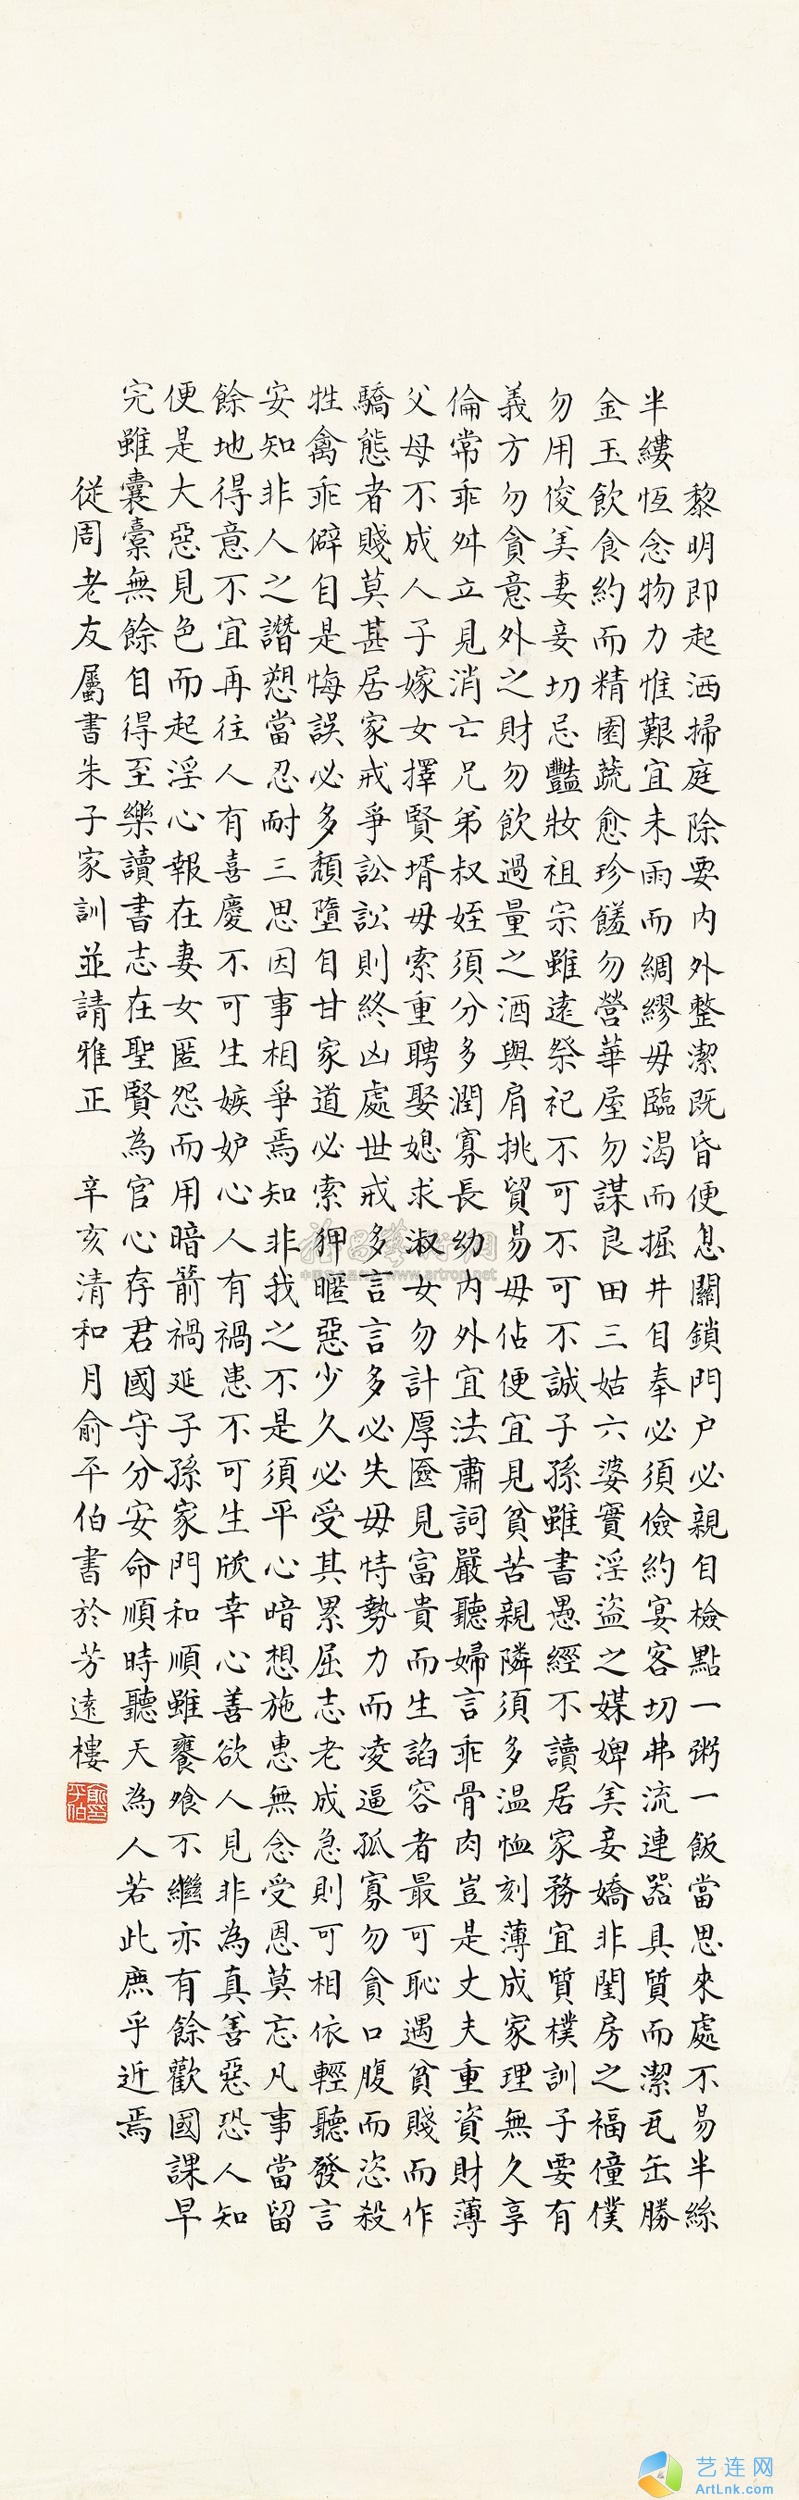 黎明即起洒掃庭除要內外整潔既昏便息關鎖門户必親自檢點一粥一飯當思來處不易半絲
半縷恆念物力惟艱宜未雨而綢繆毋臨渴而掘井自奉必須儉約宴客切弗流連器具質而潔瓦缶勝
金玉飲食約而精園蔬愈珍饈勿營華屋勿謀良田三姑六婆實淫盜之媒婢美妾嬌非閨房之福僮僕
勿用俊美妻妾切忌豔妝祖宗雖遠祭祀不可不可不誠子孫雖書愚經不讀居家務宜質樸訓子要有
義方勿貪意外之財勿飲過量之酒與肩挑貿易毋佔便宜見貧苦親隣須多温恤刻薄成家理無久享
倫常乖舛立見消亡兄弟叔姪須分多潤寡長幼內外宜法肅詞嚴聽婦言乖骨肉豈是丈夫重資財薄
父母不成人子嫁女擇賢壻毋索重聘娶媳求淑女勿計厚匳見富貴而生諂容者最可恥遇貧賤而作
驕態者賤莫甚居家戒爭訟訟則終凶處世戒多言言多必失毋恃勢力而凌逼孤寡勿貪口腹而恣殺
牲禽乖僻自是悔誤必多頹墮自甘家道必索狎暱惡少久必受其累屈志老成急則可相依輕聽發言
安知非人之譖愬當忍耐三思因事相爭焉知非我之不是須平心暗想施惠無念受恩莫忘凡事當留
餘地得意不宜再往人有喜慶不可生嫉妒心人有禍患不可生欣幸心善欲人見非為真善惡恐人知
便是大惡見色而起淫心報在妻女匿怨而用暗箭禍延子孫家門和順雖饔飧不繼亦有餘歡國課早
完雖囊橐無餘自得至樂讀書志在聖賢為官心存君國守分安命順時聽天為人若此庶乎近焉
從周老友屬書朱子家訓並請雅正 辛亥清和月俞平伯書於芳遠樓
艺连网
ArtLnk.com